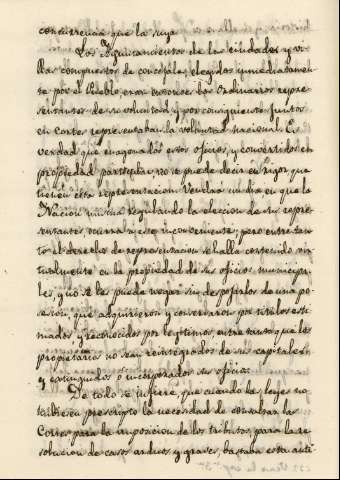 concurrencia que la suya.
Los Ayuntamientos de las ciudades y vi-
llas compuestos de concejales elegidos inmediatamen-
te por el Pueblo eran entonces los Ordinarios repre-
sentantes de su voluntad, y por consiguiente juntos
en Cortes representaban la voluntad nacional. Es
verdad que enagenados estos oficios, y convertidos en
propiedad particular, no se puede decir en rigor que
tienen esta representacion. Vendra un dia en que la
Nacion misma regulando la eleccion de sus repre-
sentantes, ocurra a este inconveniente; pero entre tan-
to el derecho de representacion se halla contenido vir-
tualmente en la propiedad de sus oficios municipa-
les, y no se les puede negar sin despojarlos de una po-
sesion, que adquirieron y conservaron por titulos esti-
mados y reconocidos por legitimos, entre tanto que los
propietarios no sean reintegrados de sus capitales,
y extinguidos o incorporados sus oficios.
De todo se infiere, que cuando las leyes no
hubiesen prescripto la necesidad de consultar las
Cortes para la imposicion de los tributos, para la re-
solucion de casos arduos y graves, bastaba esta anti-